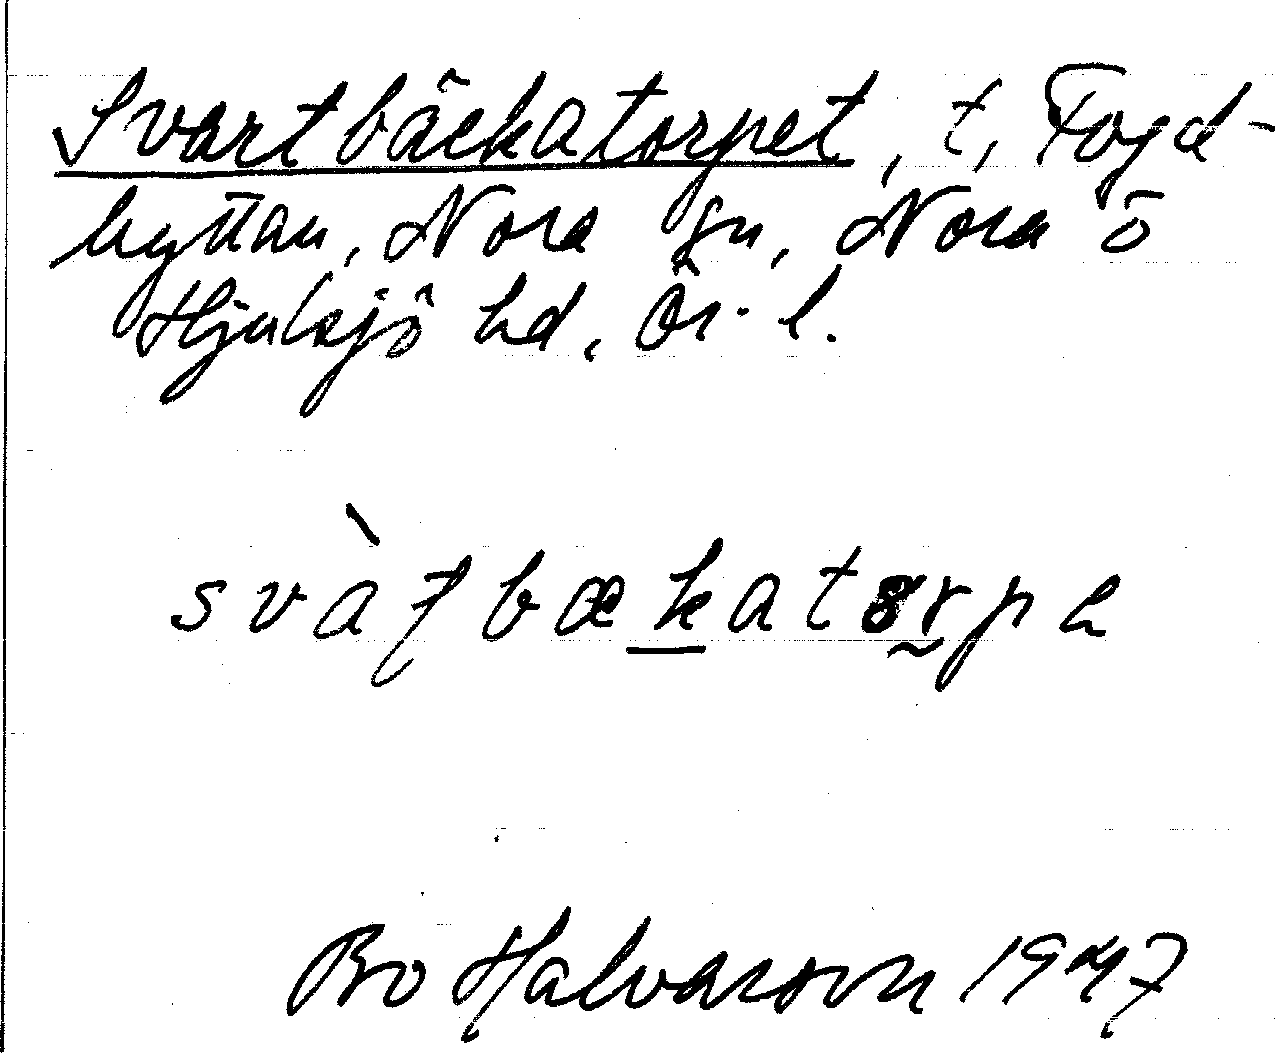 Svartbäckatorpet, t, Fogd-
hyttan, Nora sn, Nora o
Hjulsjö hd, Ör. l.
svàʈbækatɞrpe
Bo Halvarson 1947